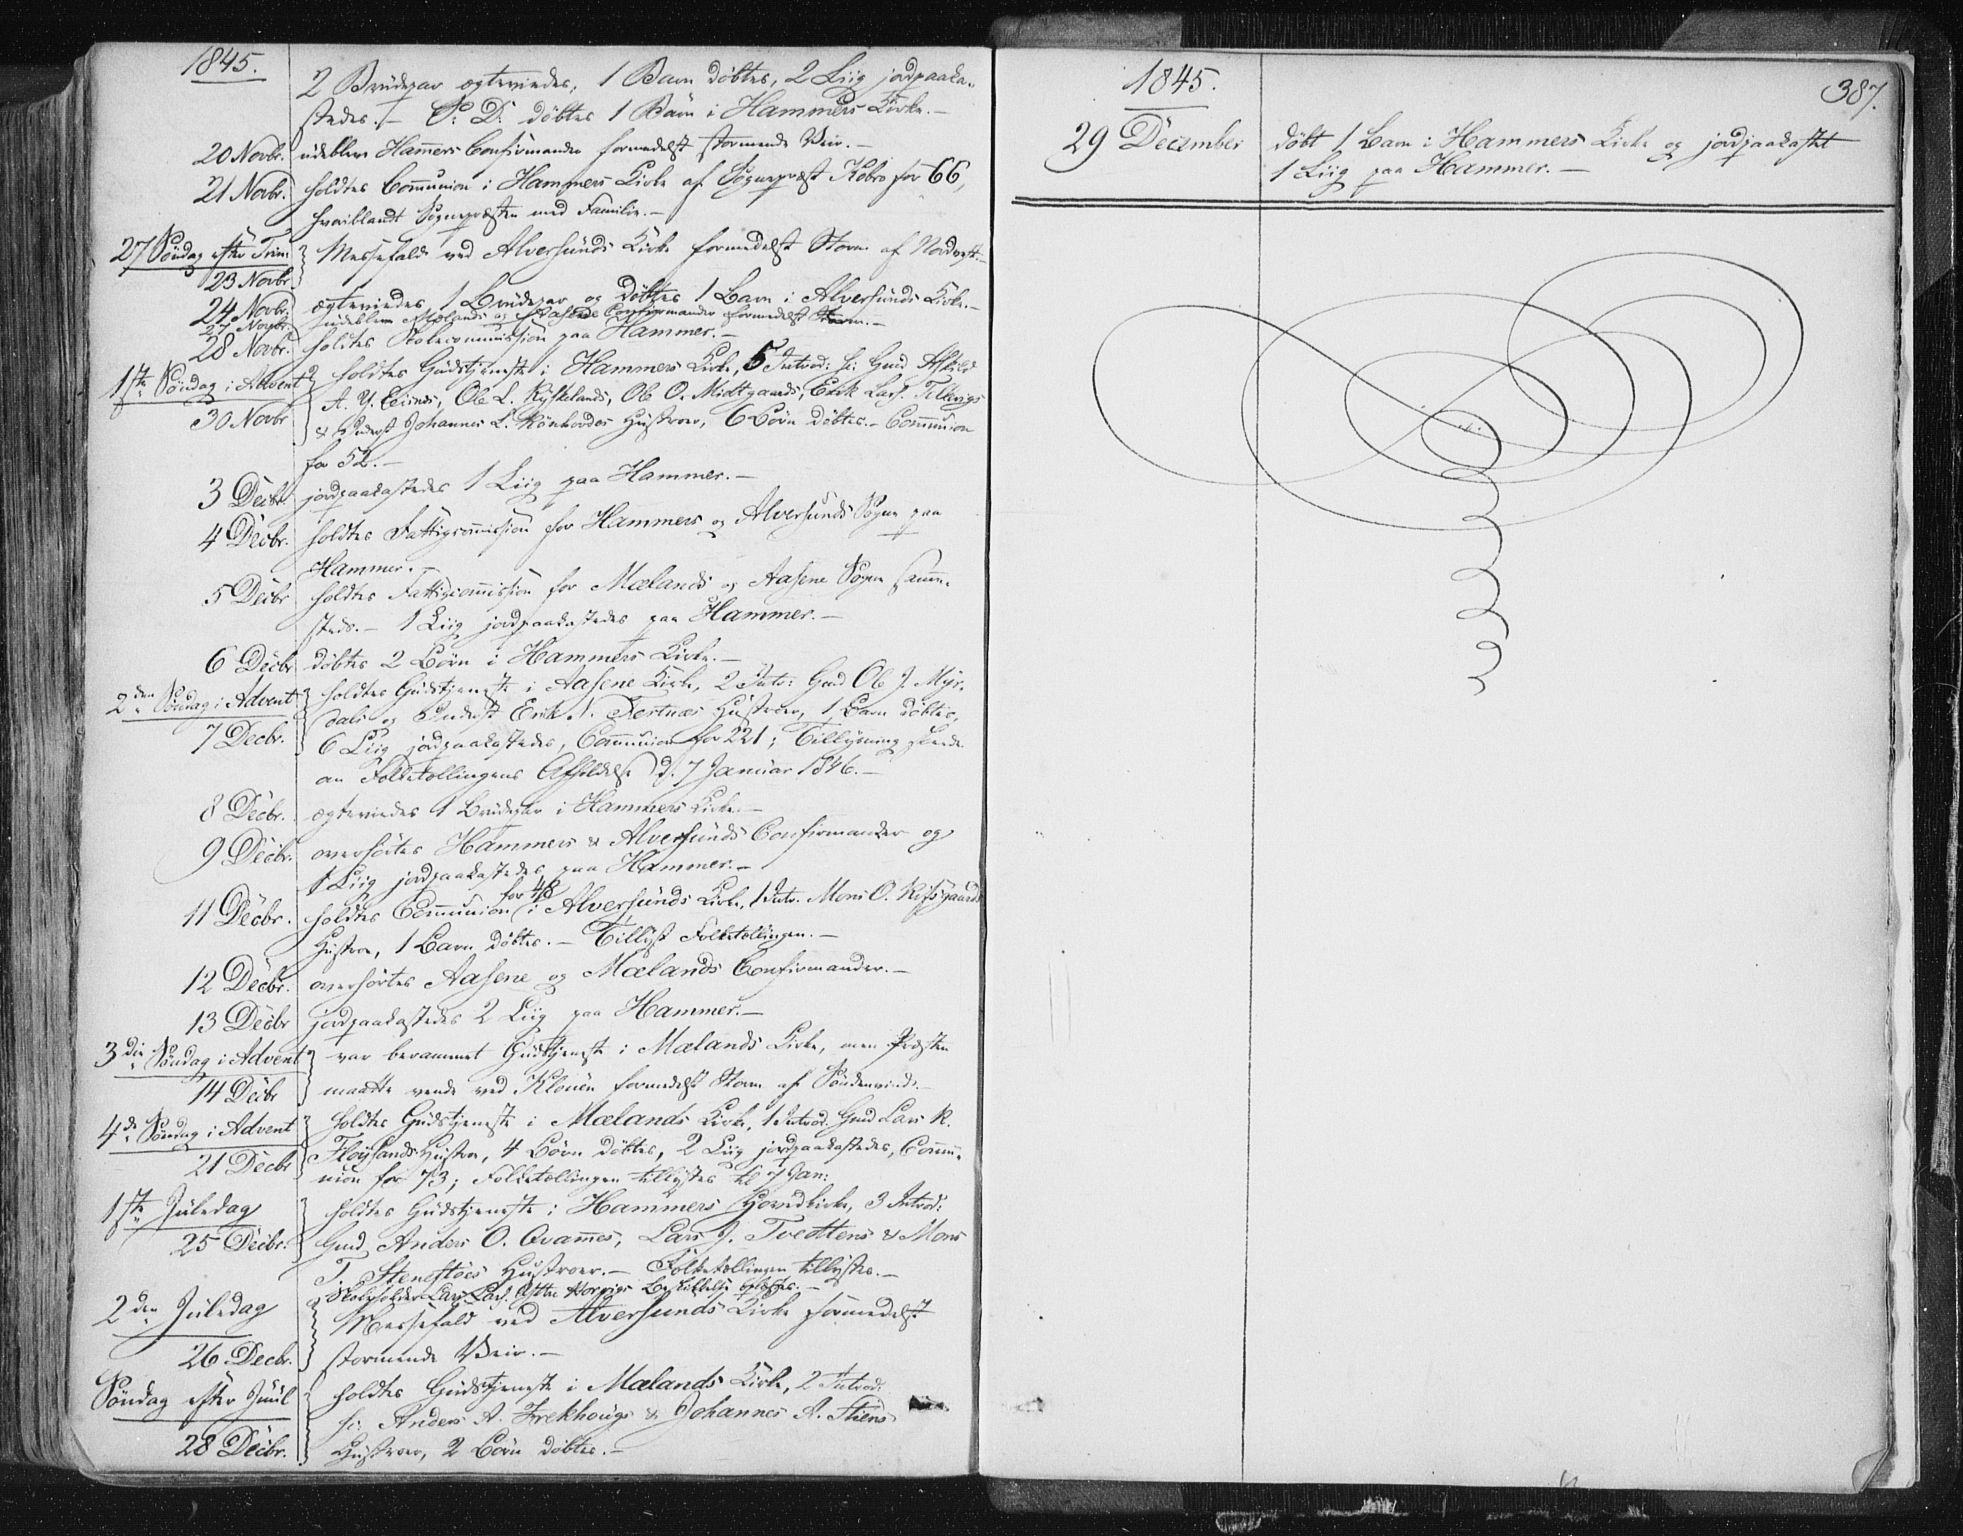 1845.
2 Brudepar ægteviedes, 1 Barn døbtes, 2 Liig jordpaaka-
stedes. – S. D. døbtes 1 Barn i Hammers Kirke. –
20 Novbr. udeblev Hamers Confirmander formedelst stormende Veir. –
21 Novbr. holdtes Communion i Hammers Kirke af Sognepræst Kobro for 66,
hvoriblandt Sognepræsten med Familie. –
27 Söndag efter Trin: Messefald ved Alversunds Kirke formedelst Storm af Nordvest. –
23 Novbr.
24 Novbr. ægteviedes 1 Brudepar og döbtes 1 Barn i Alversunds Kirke. –
27 Novbr. udeblev Mælands og Aasene Confirmander formedelst Storm. –
28 Novbr. holdtes Skolecommission paa Hammer. –
1ste Söndag i Advent holdtes Gudstjeneste i Hammers Kirke, 5 Introd: s: Gmd
A. Y. Ole L. Ole O. Midtgaards, Erik Lars.
30 Novbr. & Johannes L. Hustruer, 6 Börn döbtes. – Communion
for 52. –
3 Decbr. jordpaakastedes 1 Liig paa Hammer. –
4 Decbr. holdtes Fattigcommission for Hammers og Alversunds Sogne paa
Hammer. –
5 Decbr. holdtes Fattigcommission for Mælands og Aasene Sogne samme-
steds. – 1 Liig jordpaakastedes paa Hammer. –
6 Decbr. döbtes 2 Börn i Hammers Kirke. –
2den Söndag i Advent holdtes Gudstjeneste i Aasene Kirke, 2 Intr: Gmd Ole J. Myr-
7 Decbr. dals og Erik N. Hustruer, 1 Barn döbtes,
6 Liig jordpaakastedes, Communion for 221; Tillysning skeede
om Folketællingens Afholdelse d. 7 Januar 1846. –
8 Decbr. ægteviedes 1 Brudepar i Hammers Kirke. –
9 Decbr. overhörtes Hammers & Alversunds Confirmander og
1 Liig jordpaakastedes paa Hammer. –
11 Decbr. holdtes Communion for 48 i Alversunds Kirke, 1 Intr. Mons O.
Hustrue, 1 Barn döbtes. – Tillyst Folketællingen. –
12 Decbr. overhörtes Aasene og Mælands Confirmander. –
13 Decbr. jordpaakastedes 2 Liig paa Hammer. –
3die Söndag i Advent var berammet Gudstjeneste i Mælands Kirke, men Præsten
14 Decbr. maatte vende ved formedelst Storm af Söndenvind. –
4de Söndag i Advent holdtes Gudstjeneste i Mælands Kirke, 1 Introd. Gmd Lars K.
21 Decbr. Flöysands Hustrue, 4 Börn döbtes, 2 Liig jordpaakastedes, Commu-
nion for 73; Folketællingen tillystes til 7 Jan:
1ste Juledag holdtes Gudstjeneste i Hammers Hovedkirke, 3 Introd:
25 Decbr. Gmd Anders O. Qvammes, Lars J. Tvedtens & Mons
T. Hustruer. – Folketællingen tillystes. –
Skoleholder Lars Lars.
2den Juledag Messefald ved Alversunds Kirke formedelst
26 Decbr. stormende Veir. –
Söndag efter Juul holdtes Gudstjeneste i Mælands Kirke, 2 Introd:
s: Anders A. Frekhougs & Johannes A.
28 Decbr. Hustruer, 2 Börn döbtes. –
1845.
387.
29 December döbt 1 Barn i Hammers Kirke og jordpaakastet
1 Liig paa Hammer. –